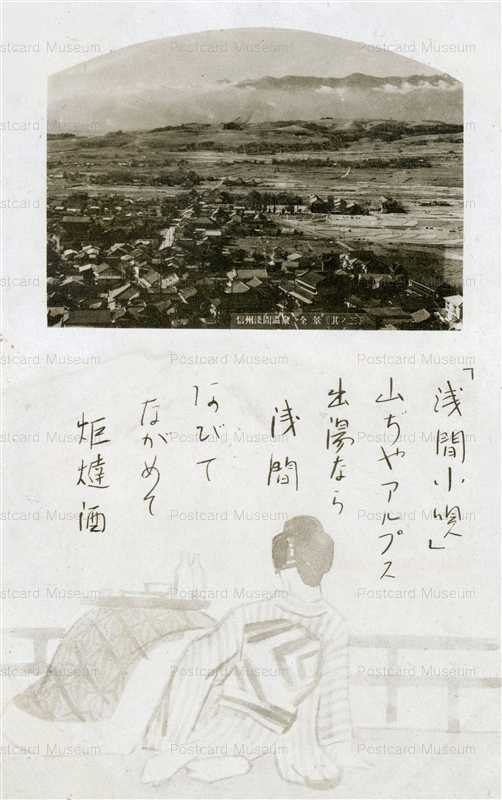 信州淺間温泉 全景(其ノ二)
「浅間小唄」
山ぢやアルプス
出湯なら
浅間
あびて
ながめて
炬燵酒
Postcard Museum